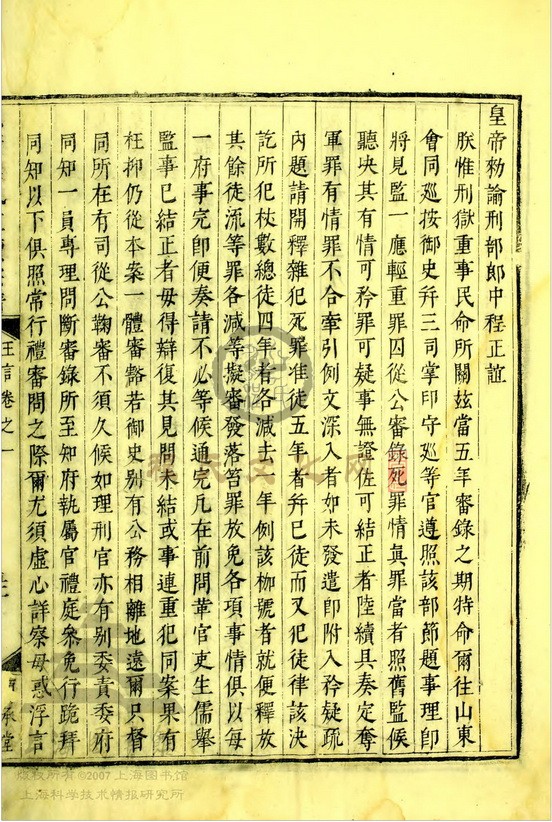 皇帝勑諭刑部郎中程正誼
朕惟刑獄重事民命所關兹當五年審錄之期特命爾往山東
會同廵按御史幷三司掌印守廵等官遵照該部節題事理卽
將見監一應輕重罪囚從公審錄死罪情眞罪當者照舊監候
聽决其有情可矜罪可疑事無證佐可結正者陸續具奏定奪
軍罪有情罪不合牽引例文深入者如未發遣卽附入矜疑疏
內題請開釋雜犯死罪准徒五年者幷已徒而又犯徒律該決
訖所犯杖數總徒四年者各減去一年例該枷號者就便釋放
其餘徒流等罪各減等擬審發落笞罪放免各項事情俱以每
一府事完卽便奏請不必等候通完凡在前問革官吏生儒舉
監事已結正者毋得辯復其見問未結或事連重犯同案果有
枉抑仍從本案一體審豁若御史别有公務相離地遠爾只督
同所在有司從公鞠審不須久候如理刑官亦有别委責委府
同知一員專理問斷審錄所至知府執屬官禮庭叅免行跪拜
同知以下俱照常行禮審問之際爾尤須虛心詳察毋惑浮言
王言卷之一
承堂
版权所有©2007 上海图书馆
上海科学技术情报研究所